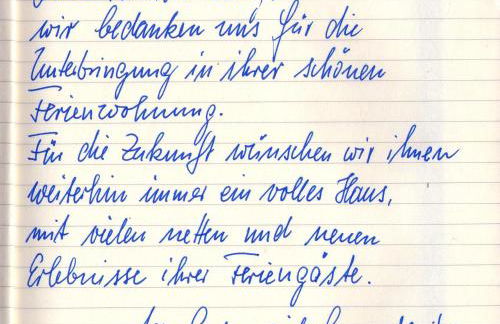 wir bedanken uns für die
Unterbringung in ihrer schönen
Ferienwohnung.
Für die Zukunft wünschen wir ihnen
weiterhin immer ein volles Haus,
mit vielen netten und neuen
Erlebnisse ihrer Feriengäste.